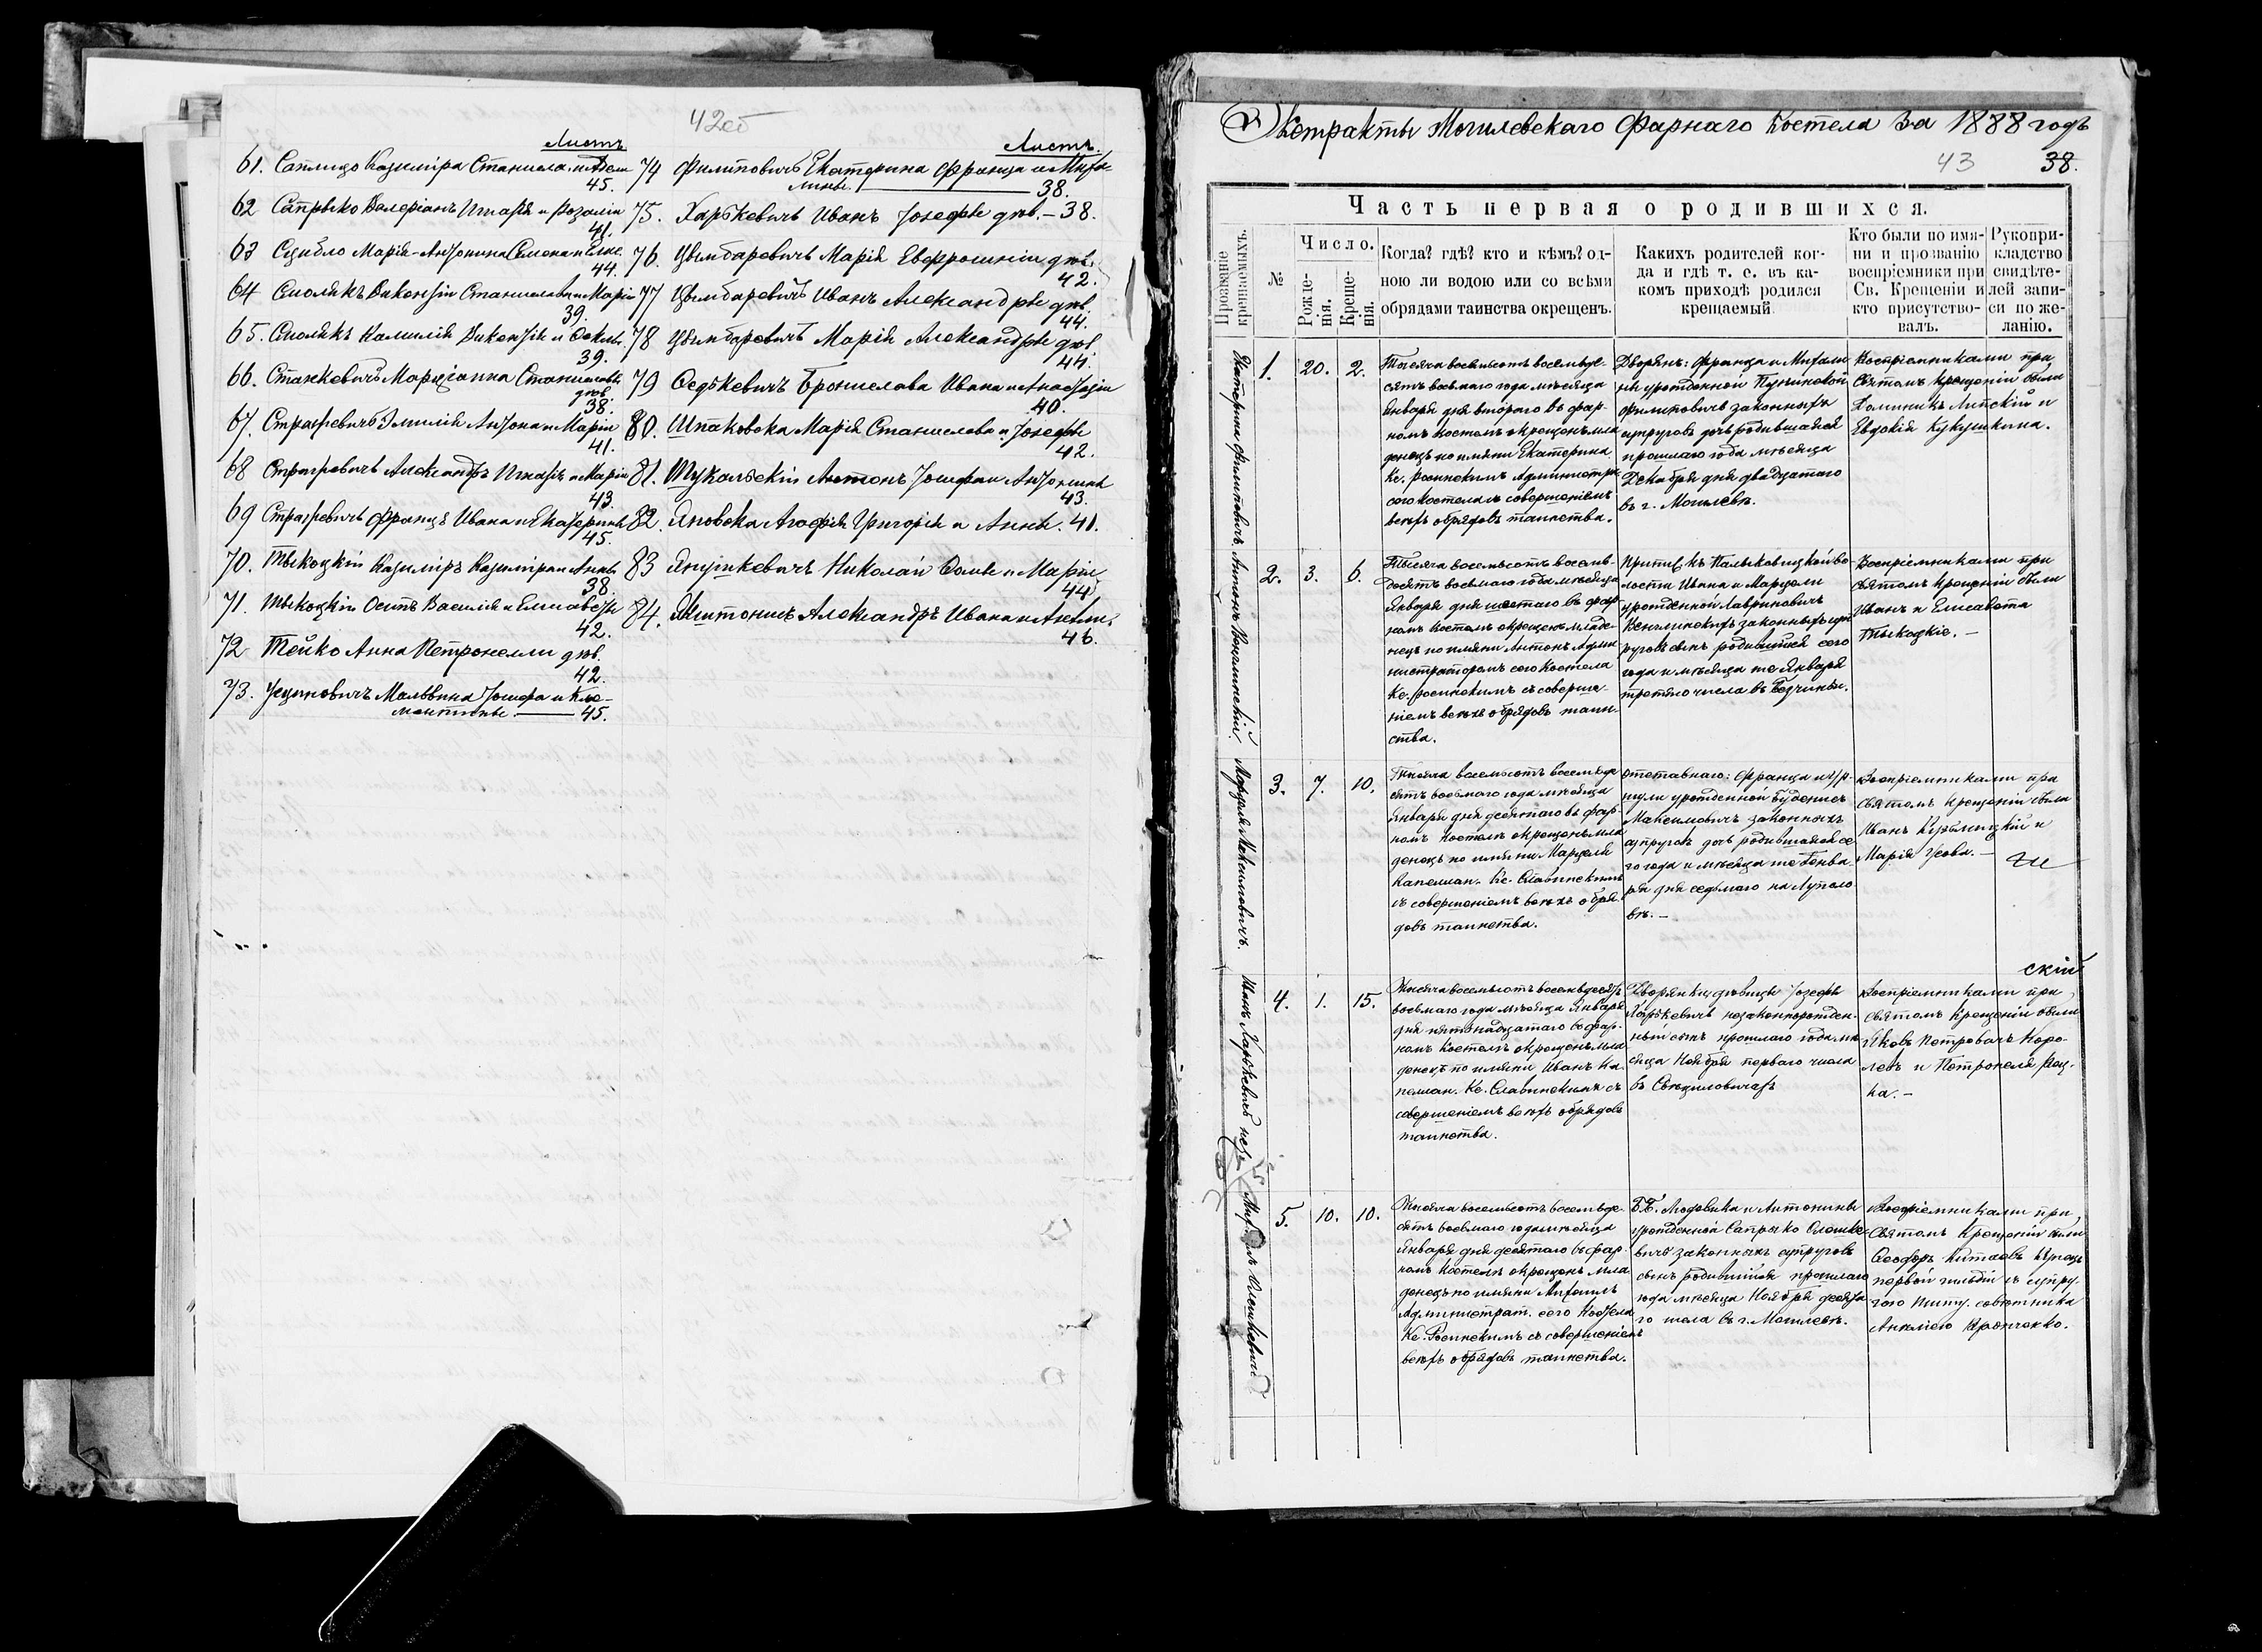 42об
Листъ
61. Саплицо Казимíра Станисла. и Ѳели
45.
62 Сапрыко Валеріанъ Игнатія и Розаліи
41.
63 Сцибло Марія-Антонина Семена и Елис.
44.
64 Смолякъ Викентій Станислава и Маріи
39.
65. Смолякъ Камилія Викентія и Ѳеклы
39.
66. Станкевичъ Марціанна Станиславы
дѣв.
38.
67. Страткевичъ Эмилія Антона и Маріи
41.
68 Александръ Игнатія и Маріи
43.
69 Францъ Ивана и Екатерины
45.
70. Тыкоцкій Казиміръ Казиміра и Анны
38.
71. Тыкоцкій Осипъ Василія и Елисаветы
42.
72 Тейко Анна Петронелли дѣв.
42.
73. Мальвина Іосифа и Кле-
ментины — 45.
Листъ.
74 Филиповичъ Екатерина Франца и Миха-
лины — 38.
75. Харкевичъ Иванъ Іозефы дѣв. — 38.
76. Цымбаревичъ Марія Евфросиніи дѣв.
42.
77 Цымбаревичъ Иванъ Александры дѣв.
44.
78 Цымбаревичъ Марія Александры дѣв.
44.
79 Ѳедкевичъ Брониславa Ивана и Анастасіи
40.
80. Шпаковска Марія Станислава и Іозефы
42.
81. Антонъ Іосифа и Антонины
43.
82. Яновска Агафія Григорія и Анны. 41.
83 Янушкевичъ Николай Ѳомы и Маріи
44
84. Александръ Ивана и
46.
Экстракты Могилевскаго Фарнаго Костела за 1888 годъ
43 38.
Часть первая о родившихся.
Прозваніе крещаемыхъ.
№
Число.
Рожде-
нія.
Креще-
нія.
Когда? гдѣ? кто и кѣмъ? од-
ною ли водою или со всѣми
обрядами таинства окрещенъ.
Какихъ родителей ког-
да и гдѣ т. е. въ ка-
комъ приходѣ родился
крещаемый.
Кто были по имя-
ни и прозванію
воспріемники при
Св. Крещеніи и
кто присутство-
валъ.
Рукопри-
кладство
свидѣте-
лей запи-
си по же-
ланію.
Екатерина Филиповичъ
1. 20. 2.
Тысяча восемьсотъ восемьде-
сятъ восьмаго года мѣсяца
Января дня втораго въ фар-
номъ костелѣ окрещенъ мла
денецъ по имяни Екатерина
Кс. Росинскимъ Администра.
сего костела съ совершеніемъ
всѣхъ обрядовъ таинства.
Дворянъ: Франца и Михали
ны урожденной
Филиповичъ законныхъ
супруговъ дочь родившаяся
прошлаго года мѣсяца
Декабря дня двадцатаго
въ г. Могилевѣ.
Воспріемниками при
Святомъ Крещеніи были
Доминикъ Липскій и
Евдокія Кукушкина.
Антонъ Венглинскій
2. 3. 6.
Тысяча восемьсотъ восемь-
десятъ восьмаго года мѣсяца
Января дня шестаго въ фар-
номъ костелѣ окрещенъ младе-
нецъ по имяни Антонъ Адми-
нистраторомъ сего костела
Кс. Росинскимъ съ соверше-
ніемъ всѣхъ обрядовъ таин-
ства.
Припис. къ Палыковицкой во-
лости Ивана и Марцели
урожденной Лавриновичъ
Венглинскихъ законныхъ суп-
руговъ сынъ родившійся сего
года и мѣсяца то Января
третяго числа въ
Воспріемниками при
святомъ крещеніи были
Иванъ и Елисавета
Тыкоцкіе. —
Марцеля Максимовичъ.
3. 7. 10.
Тысяча восемьсотъ восемьде
сятъ восьмаго года мѣсяца
Января дня десятаго въ фар-
номъ костелѣ окрещенъ мла
денецъ по имяни Марцеля
Капеллан. Кс. Славинскимъ
съ совершеніемъ всѣхъ обря-
довъ таинства.
Отставнаго: Франца и Ур-
шули урожденной
Максимовичъ законныхъ
супруговъ дочь родившаяся се
го года и мѣсяца то Генва-
ря дня седьмаго на Луполо-
вѣ. —
Воспріемниками при
святомъ Крещеніи были
Иванъ и
Марія Усова. —
Иванъ Харкевичъ
4. 1. 15.
Тысяча восемьсотъ восемьдесятъ
восьмаго года мѣсяца Января
дня пятнадцатаго въ фар-
номъ костелѣ окрещенъ мла
денецъ по имяни Иванъ Ка-
пеллан. Кс. Славинскимъ съ
совершеніемъ всѣхъ обрядовъ
таинства.
Дворянки дѣвицы Іозефы
Харкевичъ незаконнорожден-
ный сынъ прошлаго года мѣ-
сяца Ноября перваго числа
въ
скій
Воспріемниками при
Святомъ Крещеніи были
Яковъ Петровичъ Коро-
левъ и Петронеля Рац-
ка. —
Михаилъ Олешкевичъ
5. 10. 10.
Тысяча восемьсотъ восемьде-
сятъ восьмаго года мѣсяца
Января дня десятаго въ фар-
номъ костелѣ окрещенъ мла
денецъ по имяни Михаилъ
Администрат. сего Костела
Кс. Росинскимъ съ совершеніемъ
всѣхъ обрядовъ таинства.
Людовика и Антонины
урожденной Сапрыко Олешке-
вичъ законныхъ супруговъ
сынъ родившійся прошлаго
года мѣсяца Ноября десята
го числа въ г. Могилевѣ.
Воспріемниками при
Святомъ Крещеніи были
Ѳеодоръ Китаевъ Купецъ
первой гильдіи съ супру-
гою Титу. совѣтника